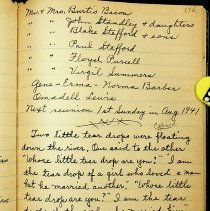 Mr & Mrs. Burtis Bacon
" " John Standley & daughters
" " Blake Stafford & sons
" " Paul Stafford
" " Floyd Pursell
" " Virgil Summers
Gene - Erma - Norma Barber
Omadell Lewis
Next reunion 1st Sunday in Aug 1941
Two little tear drops were floating
down the river. One said to the other
"Whose little tear drop are you?" "I am
the tear drop of a girl who loved a man
but he married another." "Whose little
tear drop are you?" "I am the tear